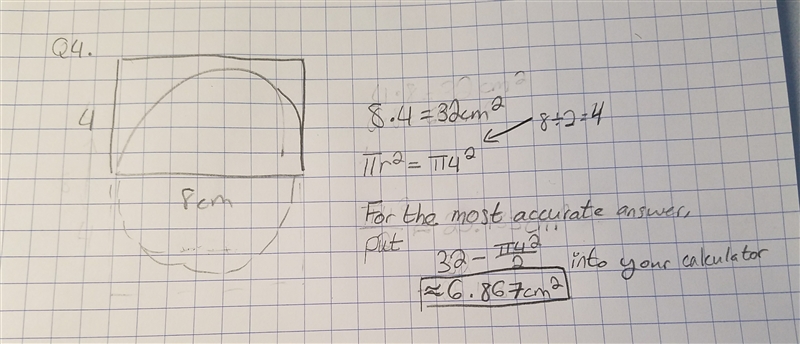 Q4.
4
8cm
8・4=32cm²
8÷2=4
πr²=π4²
For the most accurate answer,
put
32-π4²/2 into your calculator
≈6.867cm²